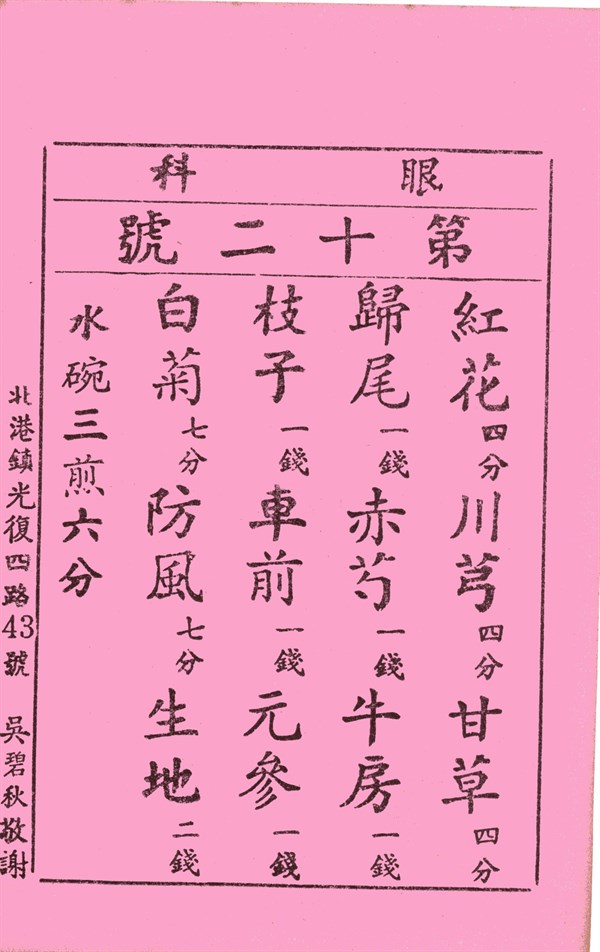 眼科
第十二號
紅花四分川芎四分甘草四分
歸尾一錢赤芍一錢牛房一錢
枝子一錢車前一錢元參一錢
白菊七分防風七分生地二錢
水碗三煎六分
北港鎮光復四路43號 吳碧秋敬謝